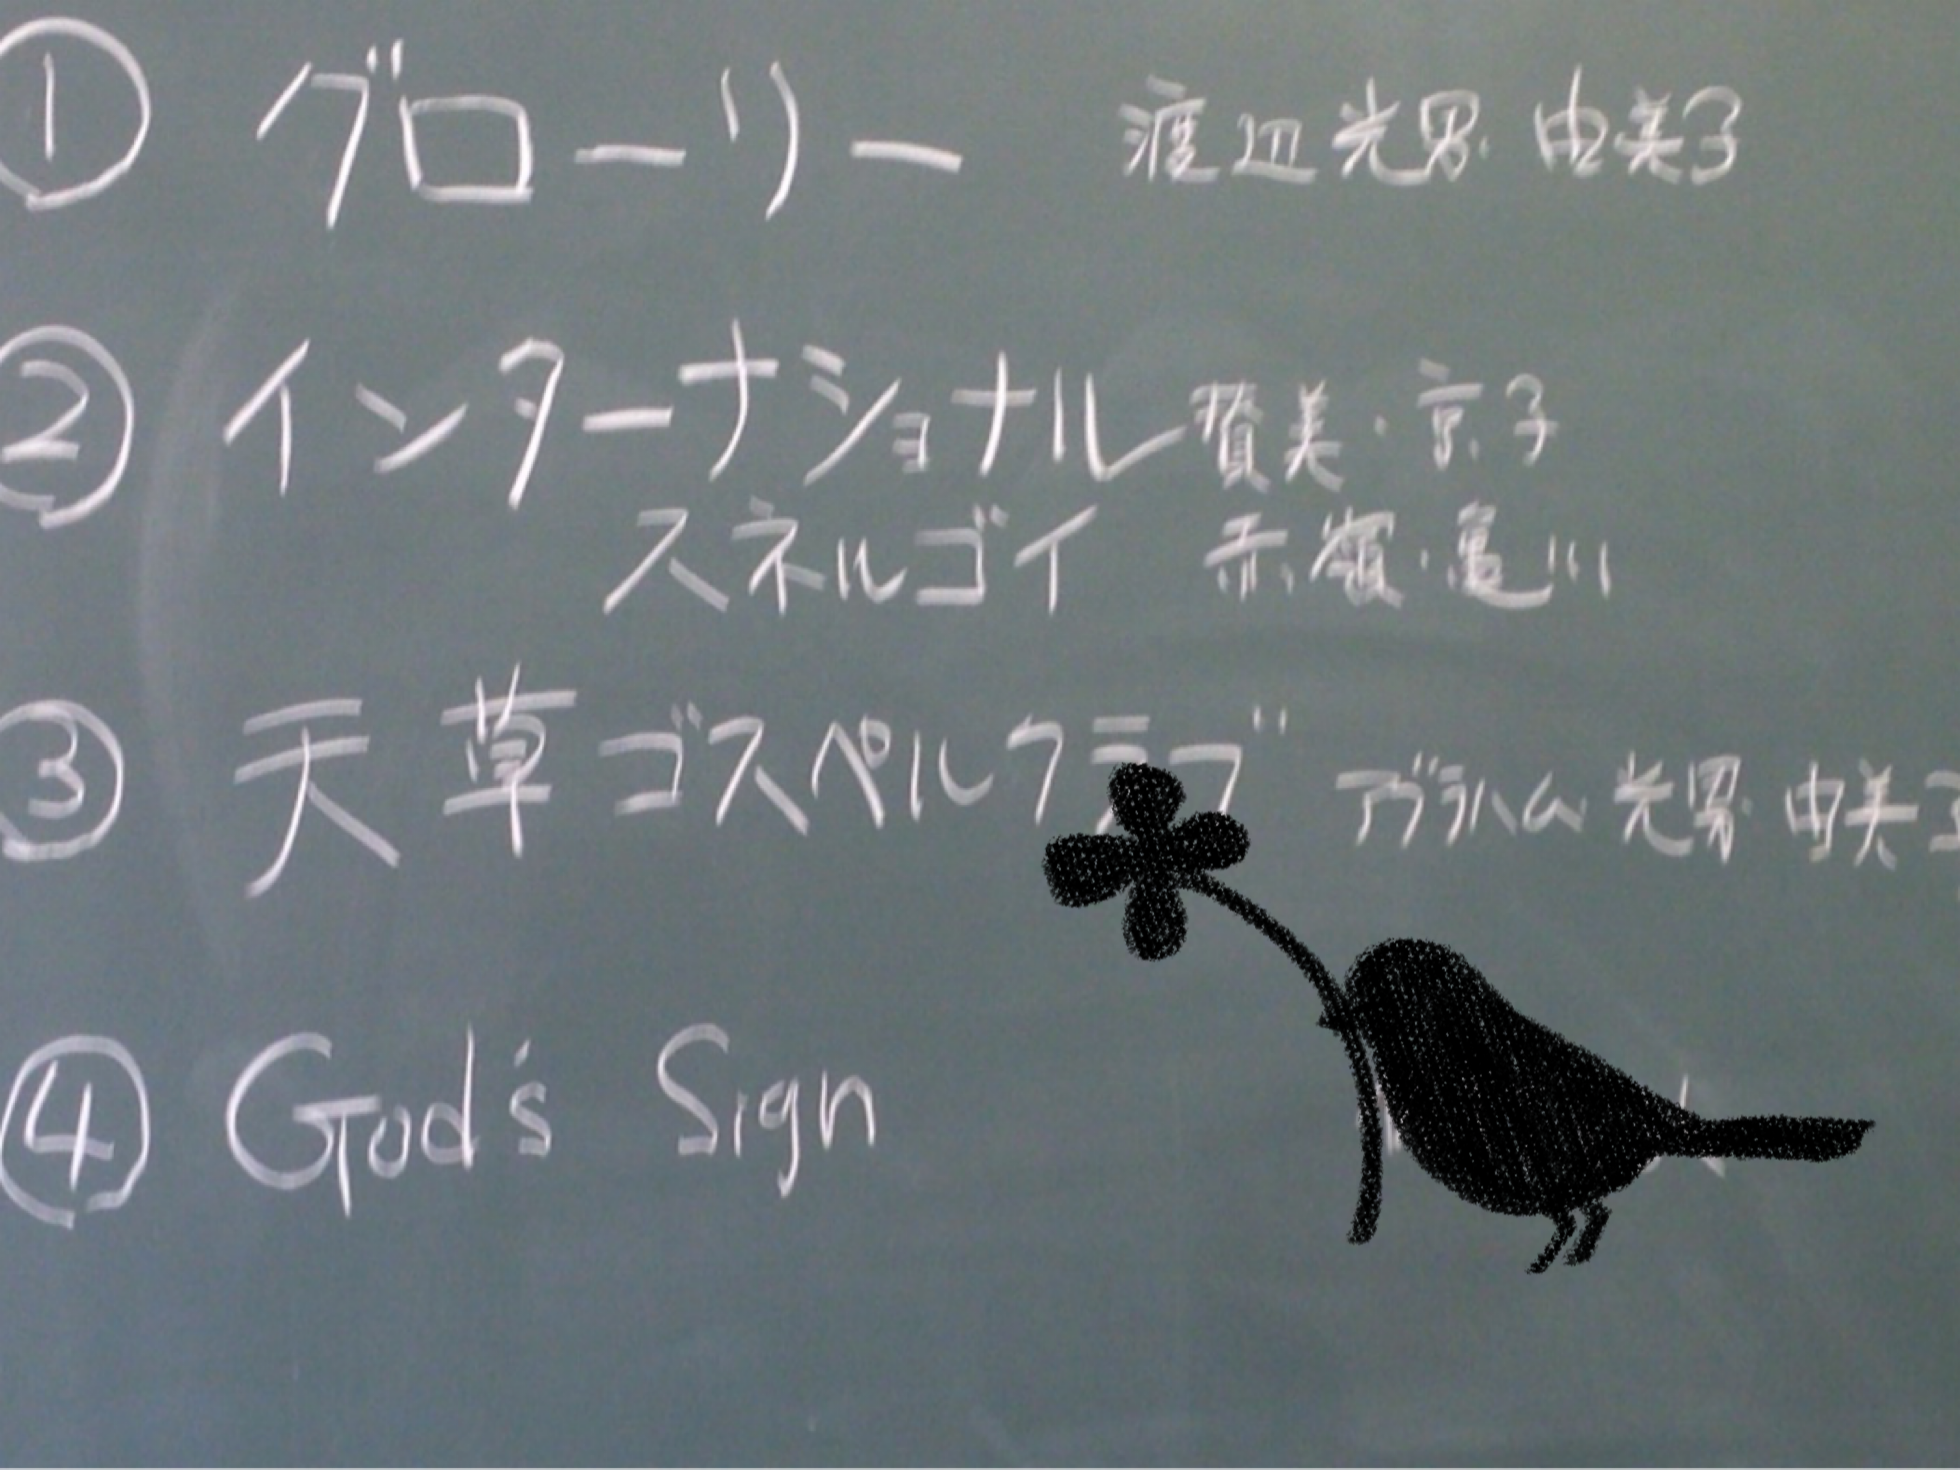 ① グローリー 渡辺光男 由美子
② インターナショナル 賛美・京子
スネルゴイ 赤嶺・亀川
③ 天草ゴスペルクラブ アブラハム 光男 由美子
④ God's Sign